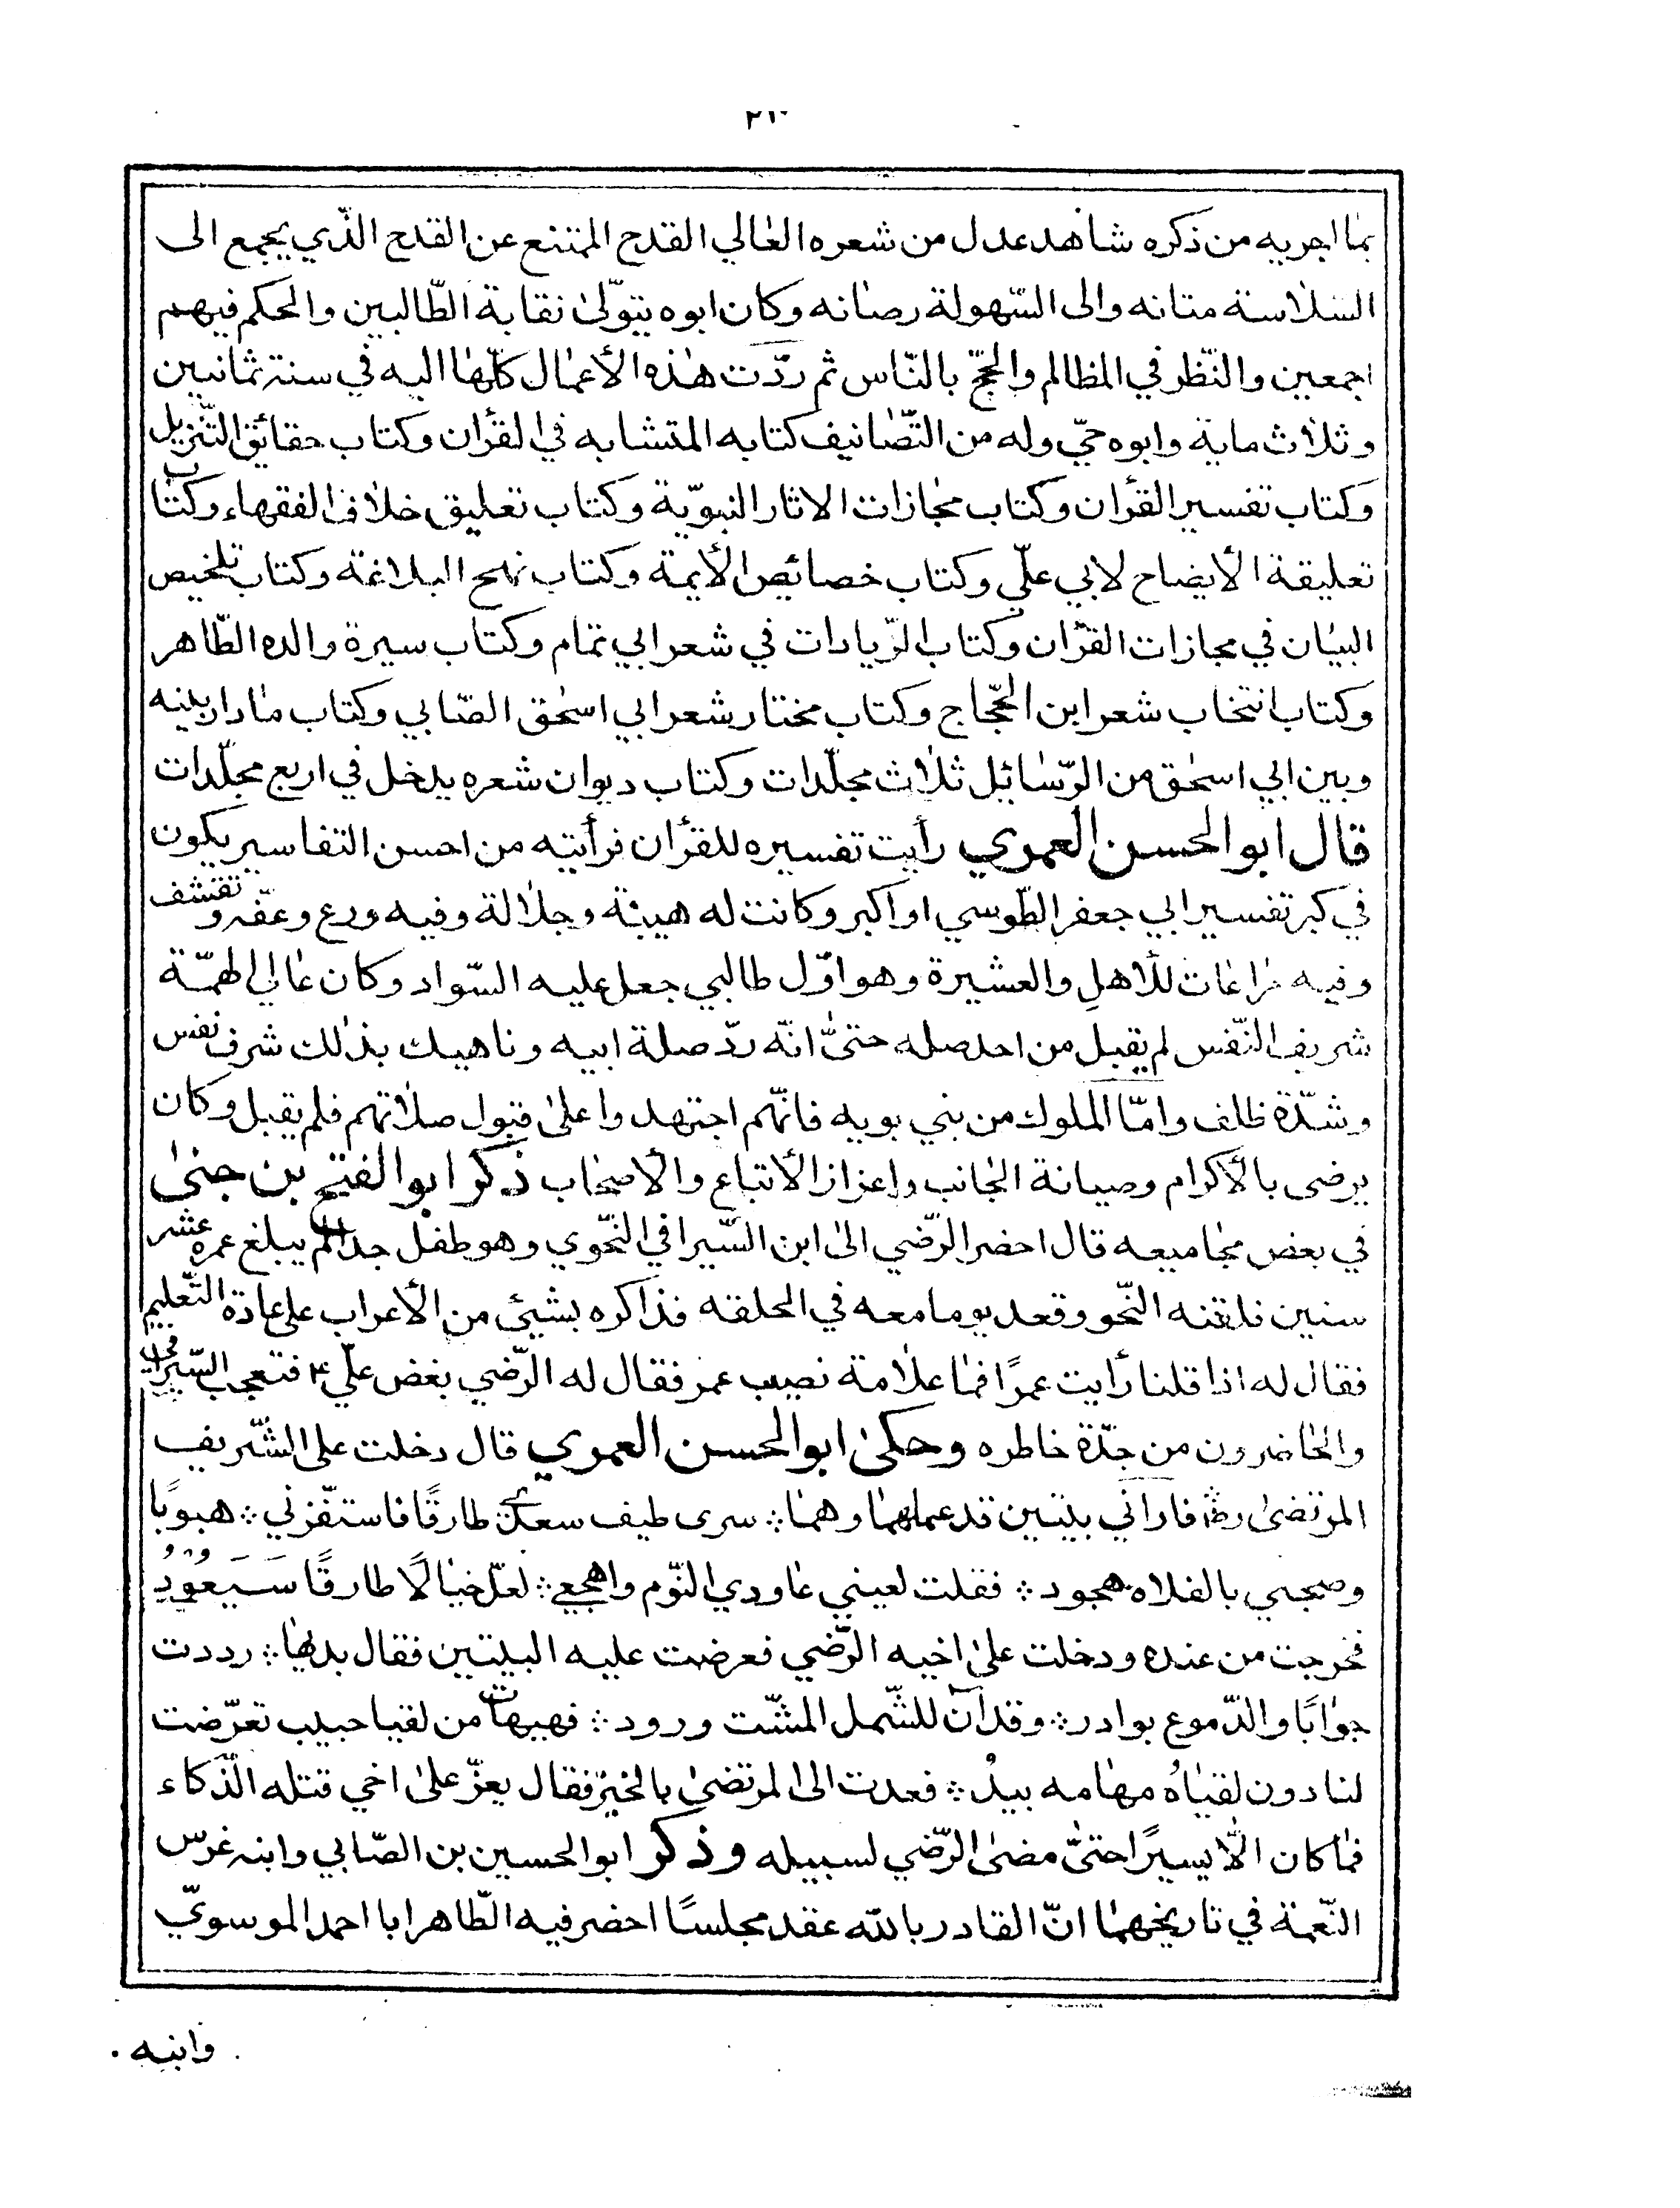 ٢١٠
بما اجريه من ذكره شاهد عدل من شعره العالي القدح الممتنع عن القدح الّذي يجمع الى
السّلاسة متانه والى السّهولة رصانه وكان ابوه يتولّى نقابة الطّالبين والحكم فيهم
اجمعين والنّظر في المظالم والحجّ بالنّاس ثم ردّت هذه الأعمال كلّها اليه في سنة ثمانين
وثلاث ماية وابوه حيّ وله من التّصانيف كتابه المتشابه في القرأن وكتاب حقائق التّنزيل
وكتاب تفسير القرأن وكتاب مجازات الاثار النبويّة وكتاب تعليق خلاف الفقهاء وكتاب
تعليقة الأيضاح لابي علّي وكتاب خصائص الأيمة وكتاب نهج البلاغة وكتاب تلخيص
البيان في مجازات القرأن وكتاب الزّيادات في شعر ابي تمام وكتاب سيرة والده الطّاهر
وكتاب انتخاب شعر ابن الحجّاج وكتاب مختار شعر ابي اسحق الصّابي وكتاب ما دار بينه
وبين ابي اسحق من الرّسائل ثلاث مجلّدات وكتاب ديوان شعره يدخل في اربع مجلّدات
قال ابو الحسن العمري رأيت تفسيره للقرأن فرأيته من احسن التفاسير يكون
في كبر تفسير ابي جعفر الطّوسي او اكبر وكانت له هيبة وجلالة وفيه ورع وعفّه وتقشف
وفيه مراعات للأهل والعشيرة وهو اوّل طالبي جعل عليه السّواد وكان عالي الهمّة
شريف النّفس لم يقبل من احد صله حتىّ انّه ردّ صلة ابيه وناهيك بذلك شرف نفس
وشدّة ظلف وامّا الملوك من بني بويه فانّهم اجتهدوا على قبول صلاتهم فلم يقبل وكان
يرضى بالأكرام وصيانة الجانب واعزاز الأتباع والأصحاب ذكر ابو الفتح بن جنى
في بعض مجاميعه قال احضر الرّضي الى ابن السّيرافي النّحوي وهو طفل جدا لم يبلغ عمره عشر
سنين فلقنه النّحو وقعد يوما معه في الحلقه فذاكره بشيئ من الأعراب على عادة التّعليم
فقال له اذا قلنا رأيت عمرًا فما علامة نصب عمر فقال له الرّضي بغض علّي ع فتعجب السّيرافي
والحاضرون من حدّة خاطره وحكى ابو الحسن العمري قال دخلت على الشّريف
المرتضى رض فاراني بيتين قد عملهما وهما ؞ سرى طيف سعدى طارقًا فاستفّزني ؞ هبوبًا
وصحبي بالفلاه هجود ؞ فقلت لعيني عاودي النّوم واهجعي ؞ لعلّ خيالًا طارقًا سَيَعُودُ
فخرجت من عنده ودخلت على اخيه الرّضي فعرضت عليه البيتين فقال بديها ؞ رددت
جوابًا والدّموع بوادر ؞ وقد آن للشّمل المشّت ورود ؞ فهيهات من لقيا حبيب تعرّضت
لنا دون لقياهُ مهامه بيدُ ؞ فعدت الى المرتضى بالخبر فقال يعزّ على اخي قتله الذّكاء
فما كان الّا يسيرًا حتىّ مضى الرّضي لسبيله وذكر ابو الحسين بن الصّابي وابنه غرس
النّعمة في تاريخهما انّ القادر بالله عقد مجلسًا احضر فيه الطّاهر ابا احمد الموسويّ
وابنه